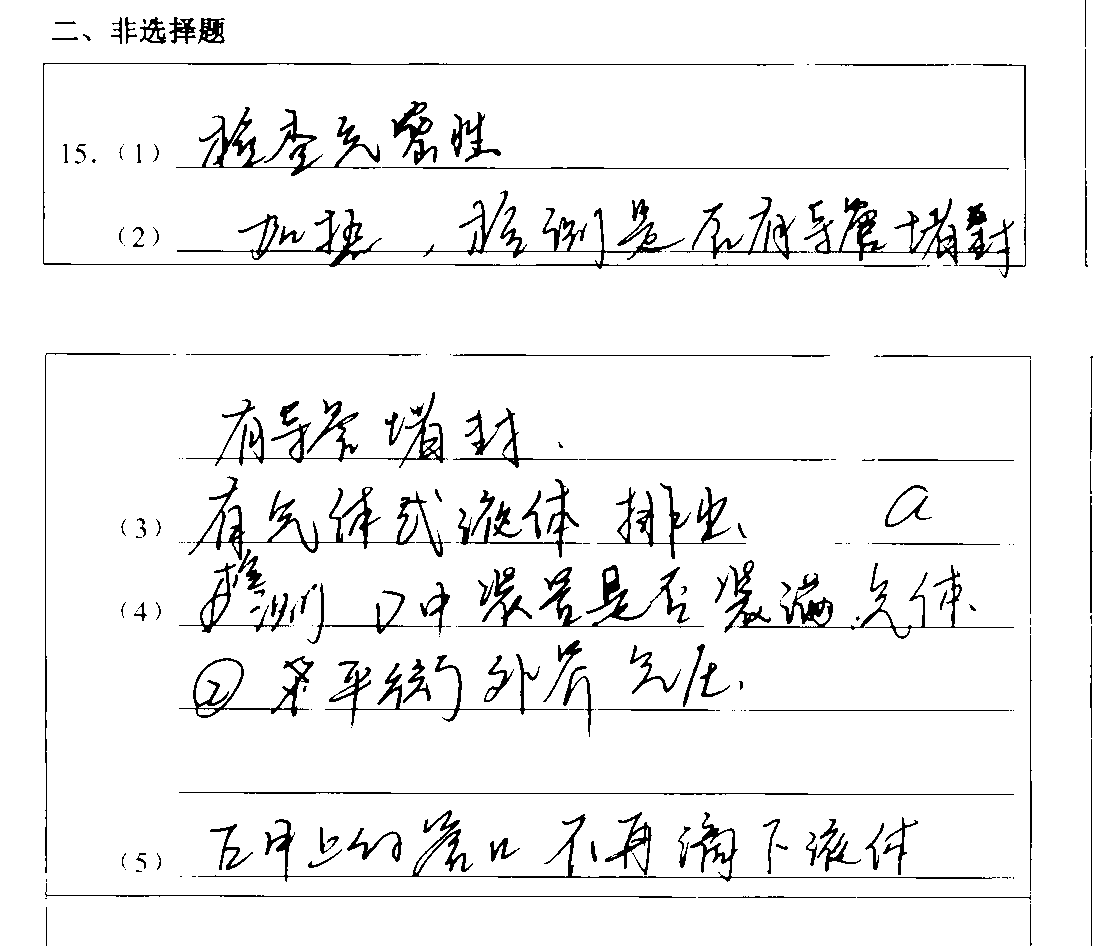 二、非选择题
15.（1） 检查气密性
（2） 加热，检测是否有导管堵封
有导管堵封.
（3） 有气体或液体 排出. a
（4） 检测 D中装置是否装满气体.
② 平衡外界气压.
（5） 上的管口不再滴下液体